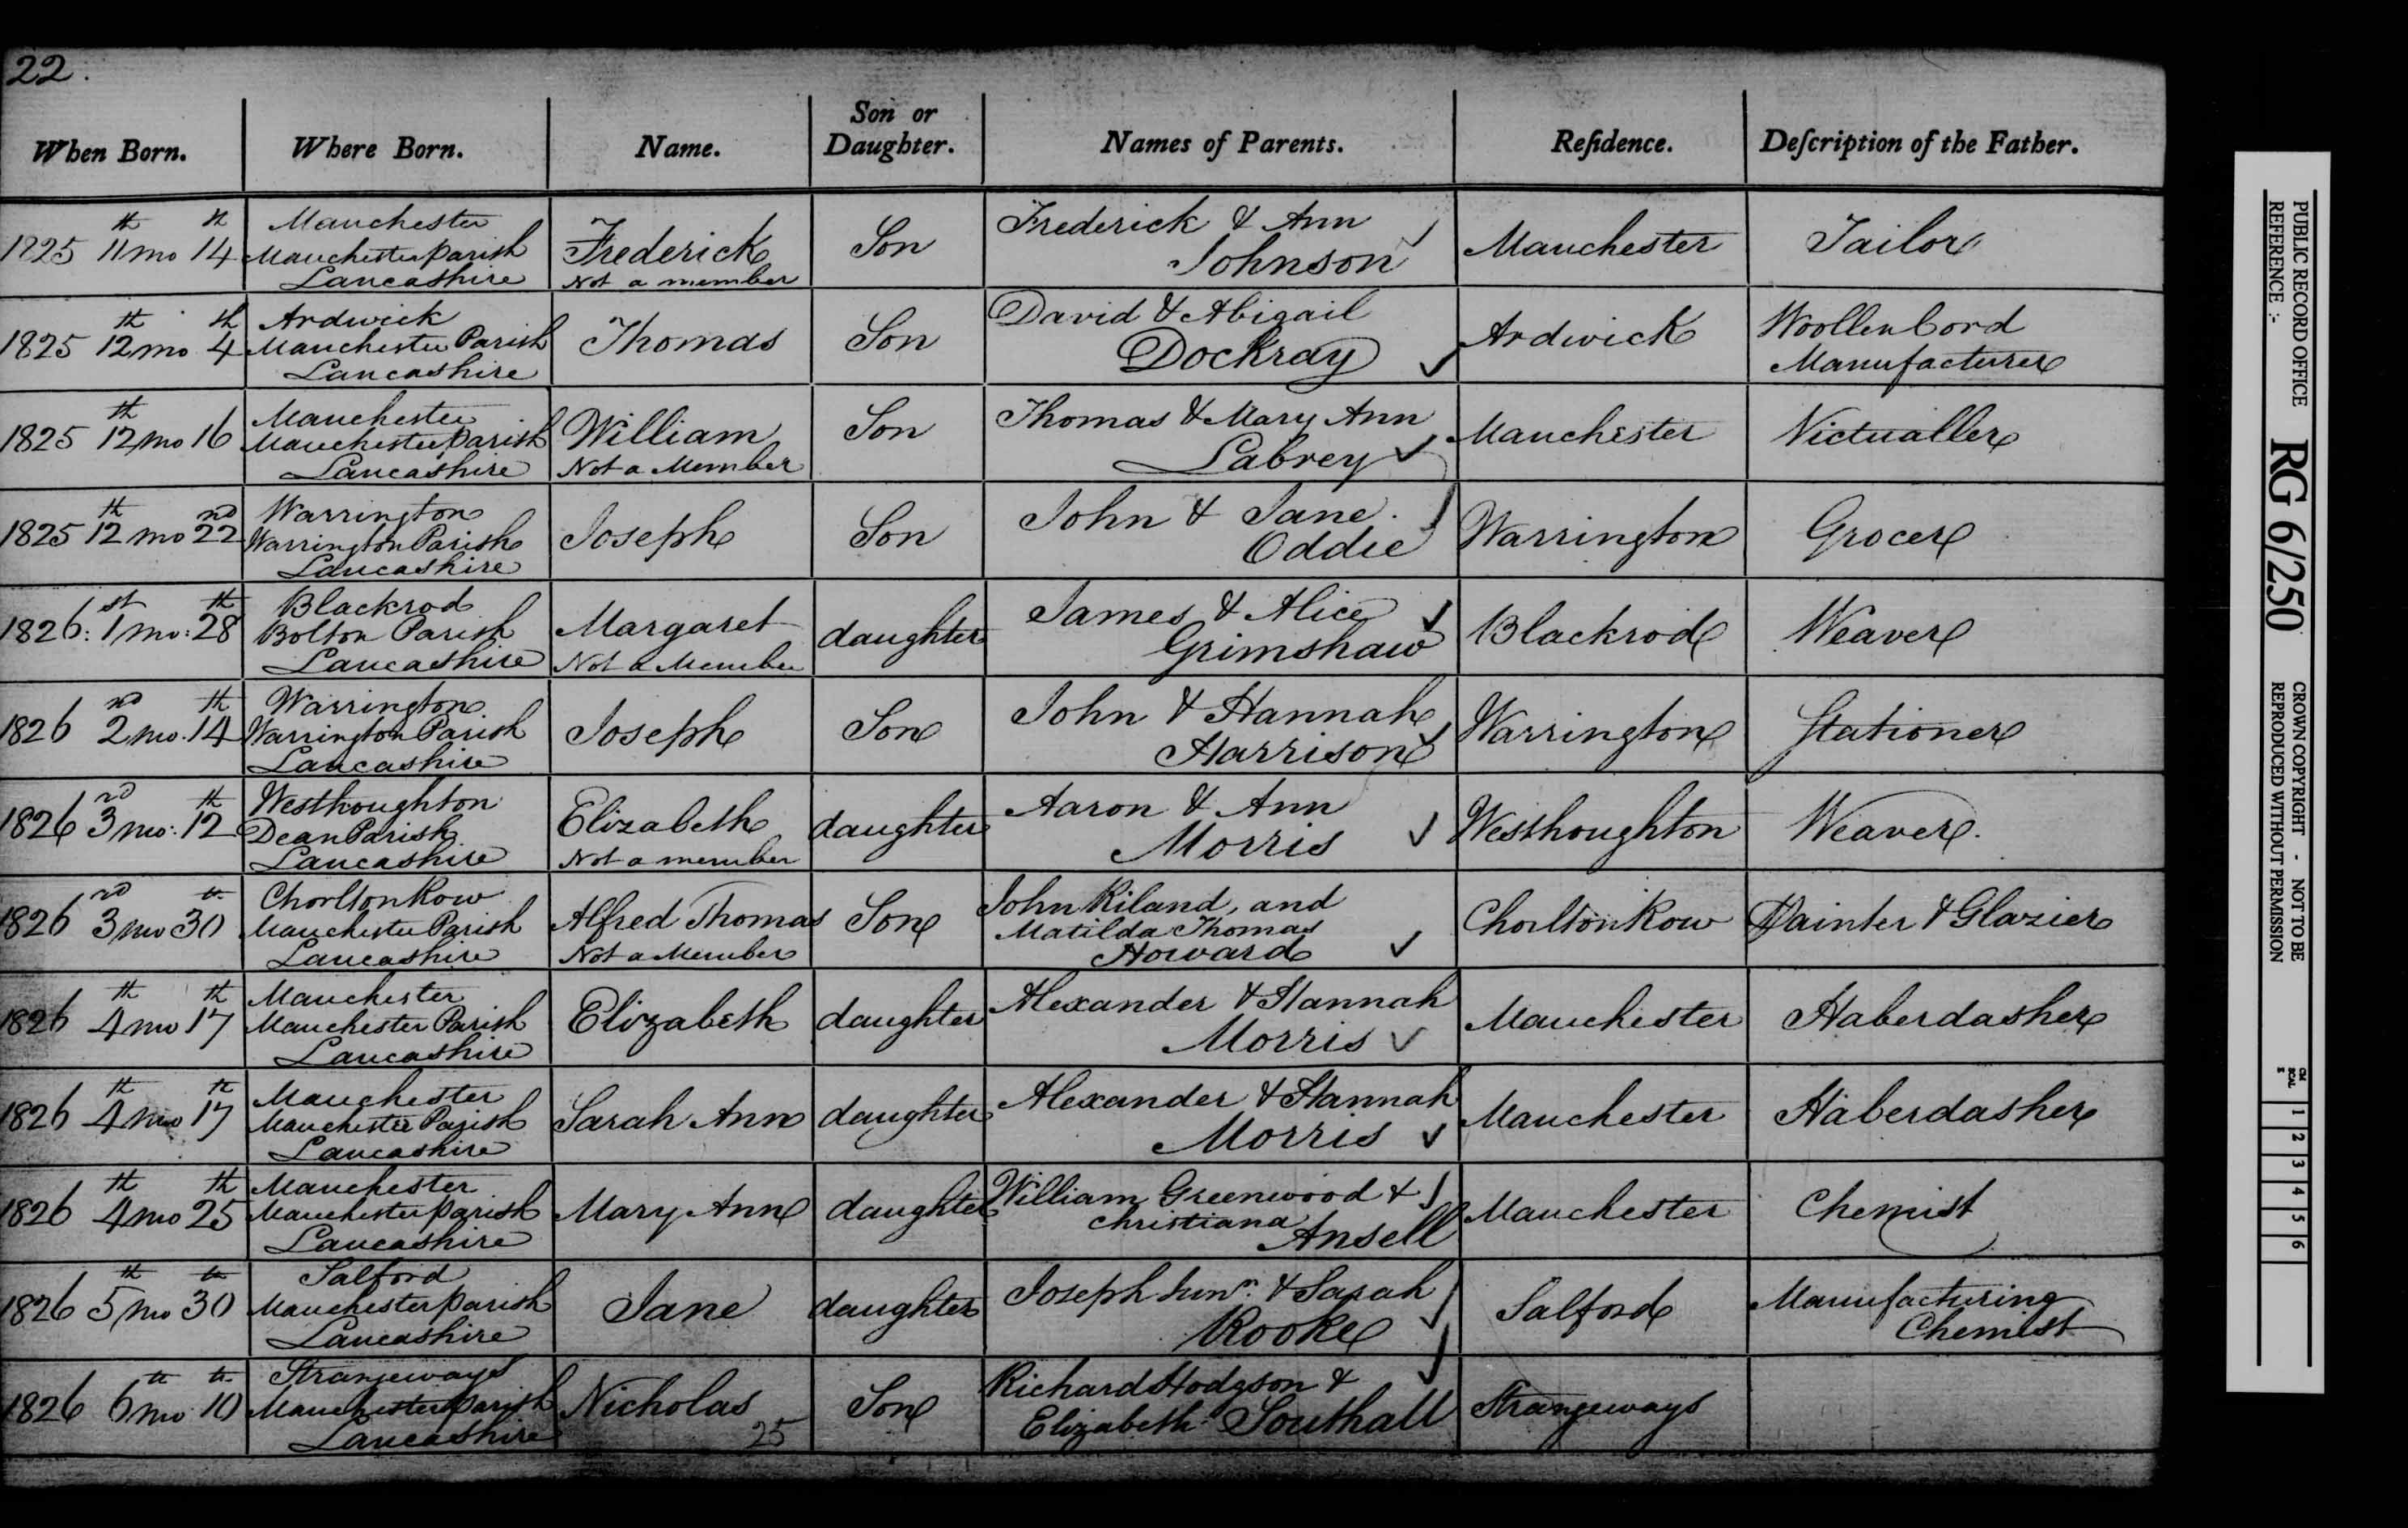 22.
When Born. Where Born. Name. Son or Daughter. Names of Parents. Reſidence. Deſcription of the Father.
1825 11th mo 14th Manchester Manchester parish Lancashire Frederick Not a member Son Frederick & Ann Johnson Manchester Tailor
1825 12th mo 4th Ardwick Manchester Parish Lancashire Thomas Son David & Abigail Dockray Ardwick Woollen Cord Manufacturer
1825 12th mo 16 Manchester Manchester parish Lancashire William Not a Member Son Thomas & Mary Ann Labrey Manchester Victualler
1825 12th mo 22nd Warrington Warrington Parish Lancashire Joseph Son John & Jane Oddie Warrington Grocer
1826: 1st mo: 28th Blackrod Bolton Parish Lancashire Margaret Not a Member daughter James & Alice Grimshaw Blackrod Weaver
1826 2nd mo. 14th Warrington Warrington Parish Lancashire Joseph Son John & Hannah Harrison Warrington Stationer
1826 3rd mo: 12th Westhoughton Dean Parish Lancashire Elizabeth Not a member daughter Aaron & Ann Morris Westhoughton Weaver.
1826 3rd mo 30th Chorlton Row Manchester Parish Lancashire Alfred Thomas Not a Member Son John Riland, and Matilda Thomas Howard Chorlton Row Painter & Glazier
1826 4th mo 17th Manchester Manchester Parish Lancashire Elizabeth daughter Alexander & Hannah Morris Manchester Haberdasher
1826 4th mo 17th Manchester Manchester Parish Lancashire Sarah Ann daughter Alexander & Hannah Morris Manchester Haberdasher
1826 4th mo 25th Manchester Manchester parish Lancashire Mary Ann daughter William Greenwood & Christiana Ansell Manchester Chemist
1826 5th mo 30th Salford Manchester parish Lancashire Jane daughter Joseph Junr. & Sarah Rooke Salford Manufacturing Chemist
1826 6th mo 10th Strangeways Manchester Parish Lancashire Nicholas 25 Son Richard Hodgson & Elizabeth Southall Strangeways
PUBLIC RECORD OFFICE
REFERENCE :-
RG 6/250
CROWN COPYRIGHT - NOT TO BE
REPRODUCED WITHOUT PERMISSION
CM
1 2 3 4 5 6